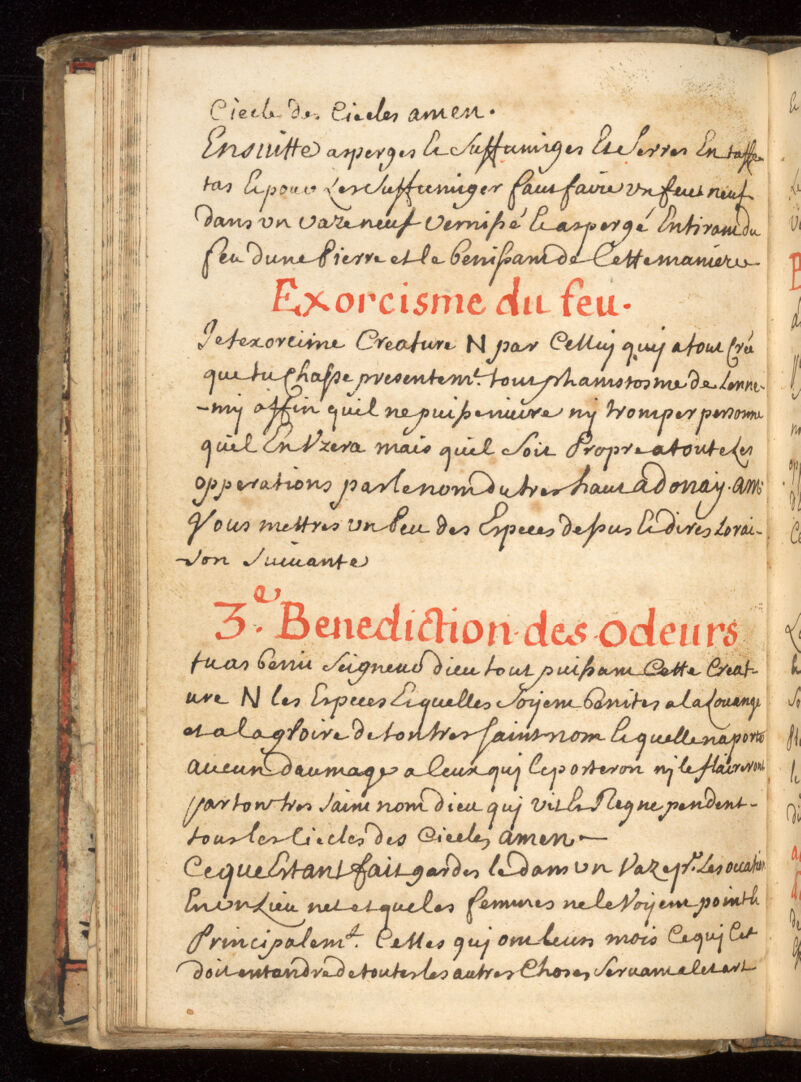 Ciecle des Ciecles amen.
Ensuitte asperges le Suffumiges Et Serres En taffe
tas Et pour Les Suffumiger faut faire vn feu neuf
dans vn vaze neuf vernissé Et aspergé En tirant du
feu dune Pierre et le benissant de Cette maniere
Exorcisme du feu.
Je texorcime Creature N par Celluy quy a tout Créé
que tu Chasse presentemt. tout phamstosme de Lenne-
-my affin quil ne puisse nuire ny tromper personne
quil En Vzera mais quil Soit Propre a toute Les
opperations par le nom du tres haut adonay. am:
Vous mettres un Peu des Especes dessus Et dires Lorai-
-son Suiuante
3.e Benediction des odeurs
tu as beni Seigneur dieu tout puissant Cette Creat-
ure N les Especes Lequelles Soyent benites a la Louange
et a la gloire de ton tres saint nom Lequelle naporte
aucun daumage a Ceux quy le porteron ny le flaireront
par ton tres Saint nom dieu quy vit Et Regne pendent-
tous les Ciecles des Ciecles amen
Ce que Estant fait gardes le dans un Vaze pr. Les ocations
En un Lieu net et que les femmes ne le Voyent point Et
Principalemt. Celles quy ont leurs mois Ce quy Cet
doit entandre de toutes les autres Choses Seruant a Cet art